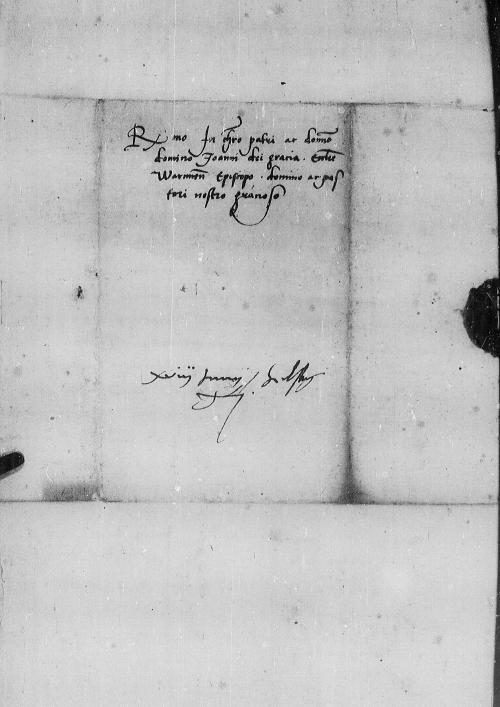 R mo In chro patri ac domino
domino Joanni dei gracia. Eccle
Warmien Episcopo. domino ac pas
tori nostro gracioso
xviij Junij